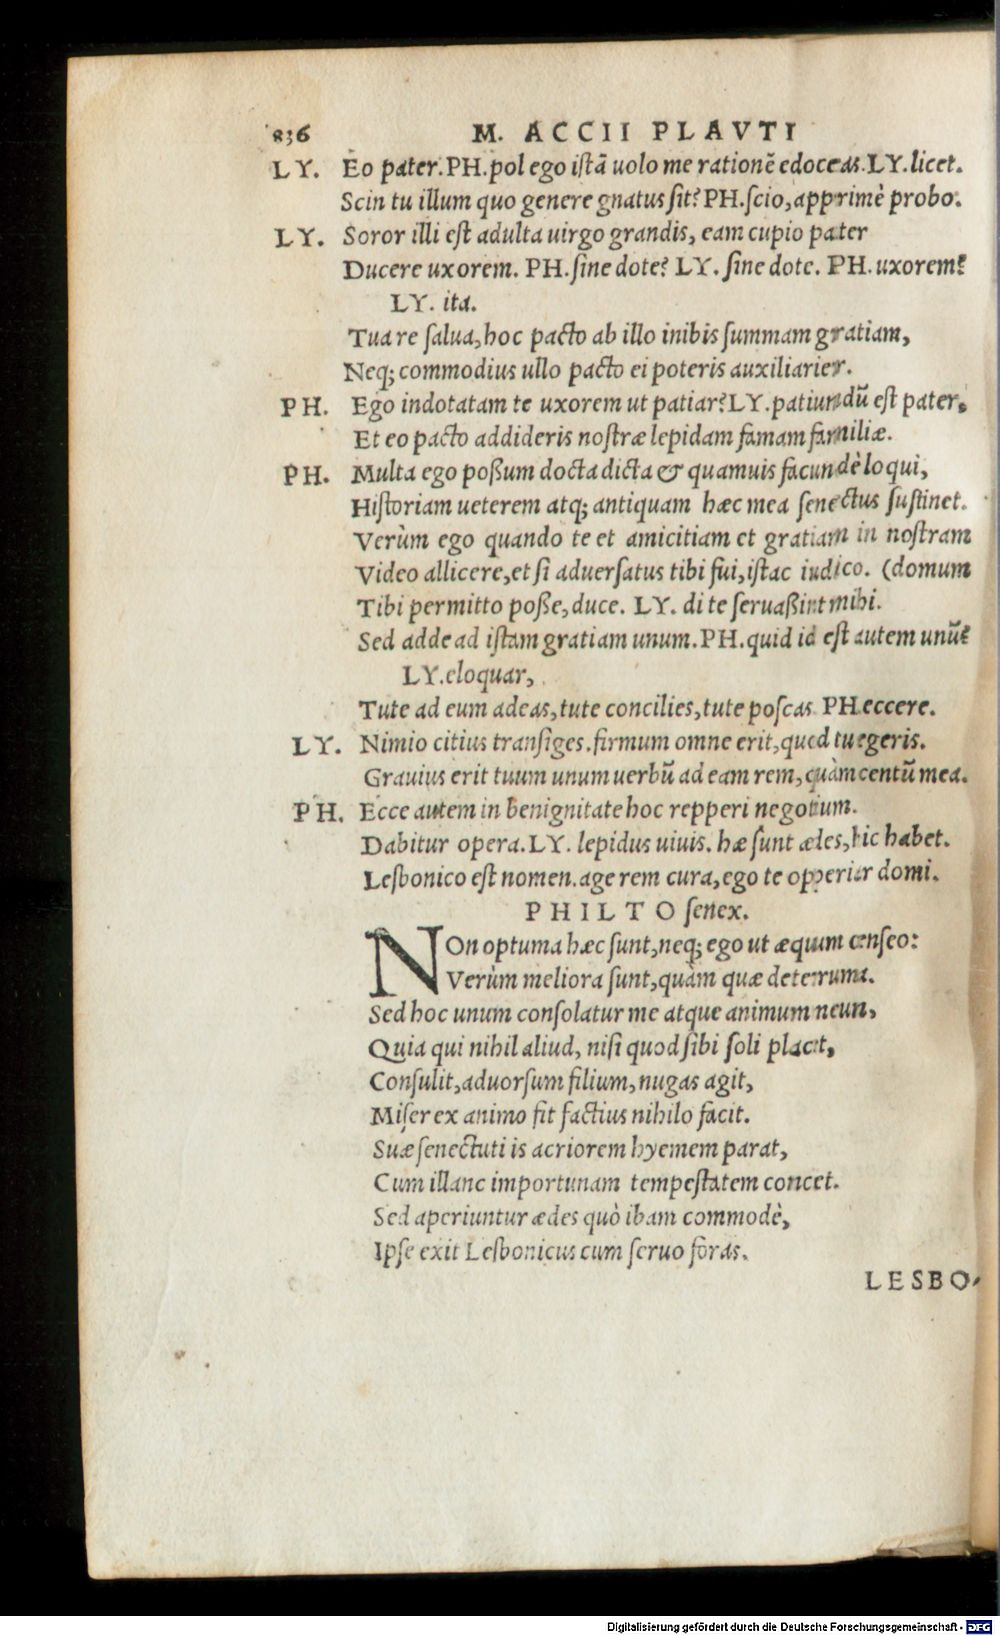 836 M. ACCII PLAVTI
LY. Eo pater. PH. pol ego istã uolo me rationẽ edoceas. LY. licet.
Scin tu illum quo genere gnatus sit? PH. scio, apprimè probo.
LY. Soror illi est adulta uirgo grandis, eam cupio pater
Ducere uxorem. PH. sine dote? LY. sine dote. PH. uxorem?
LY. ita.
Tua re salua, hoc pacto ab illo inibis summam gratiam,
Neq; commodius ullo pacto ei poteris auxiliarier.
PH. Ego indotatam te uxorem ut patiar? LY. patiundũ est pater,
Et eo pacto addideris nostræ lepidam famam familiæ.
PH. Multa ego possum docta dicta & quamuis facundè loqui,
Historiam ueterem atq; antiquam hæc mea senectus sustinet.
Verùm ego quando te et amicitiam et gratiam in nostram
Video allicere, et si aduersatus tibi fui, istac iudico. (domum
Tibi permitto posse, duce. LY. di te seruassint mihi.
Sed adde ad istam gratiam unum. PH. quid id est autem unũ?
LY. eloquar,
Tute ad eum adeas, tute concilies, tute poscas PH. eccere.
LY. Nimio citius transiges. firmum omne erit, quod tu egeris.
Grauius erit tuum unum uerbũ ad eam rem, quàm centũ mea.
PH. Ecce autem in benignitate hoc repperi negotium.
Dabitur opera. LY. lepidus uiuis. hæ sunt ædes, hic habet.
Lesbonico est nomen. age rem cura, ego te opperiar domi.
PHILTO senex.
NOn optuma hæc sunt, neq; ego ut æquum censeo:
Verùm meliora sunt, quàm quæ deterruma.
Sed hoc unum consolatur me atque animum meum,
Quia qui nihil aliud, nisi quod sibi soli placet,
Consulit, aduorsum filium, nugas agit,
Miser ex animo fit factius nihilo facit.
Suæ senectuti is acriorem hyemem parat,
Cum illanc importunam tempestatem concet.
Sed aperiuntur ædes quò ibam commodè,
Ipse exit Lesbonicus cum seruo foras.
LESBO-
Digitalisierung gefördert durch die Deutsche Forschungsgemeinschaft - DFG